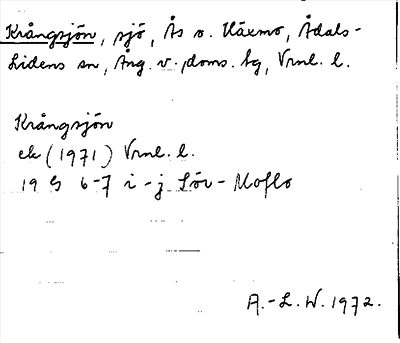 Krångsjön, sjö, Ås o. Häxmo, Ådals-
Lidens sn, Ång. v. doms. tg, Vrnl. l.
Krångsjön
ek (1971) Vrnl. l.
19 G 6-7 i-j Sör-Moflo
A.-L. W. 1972.